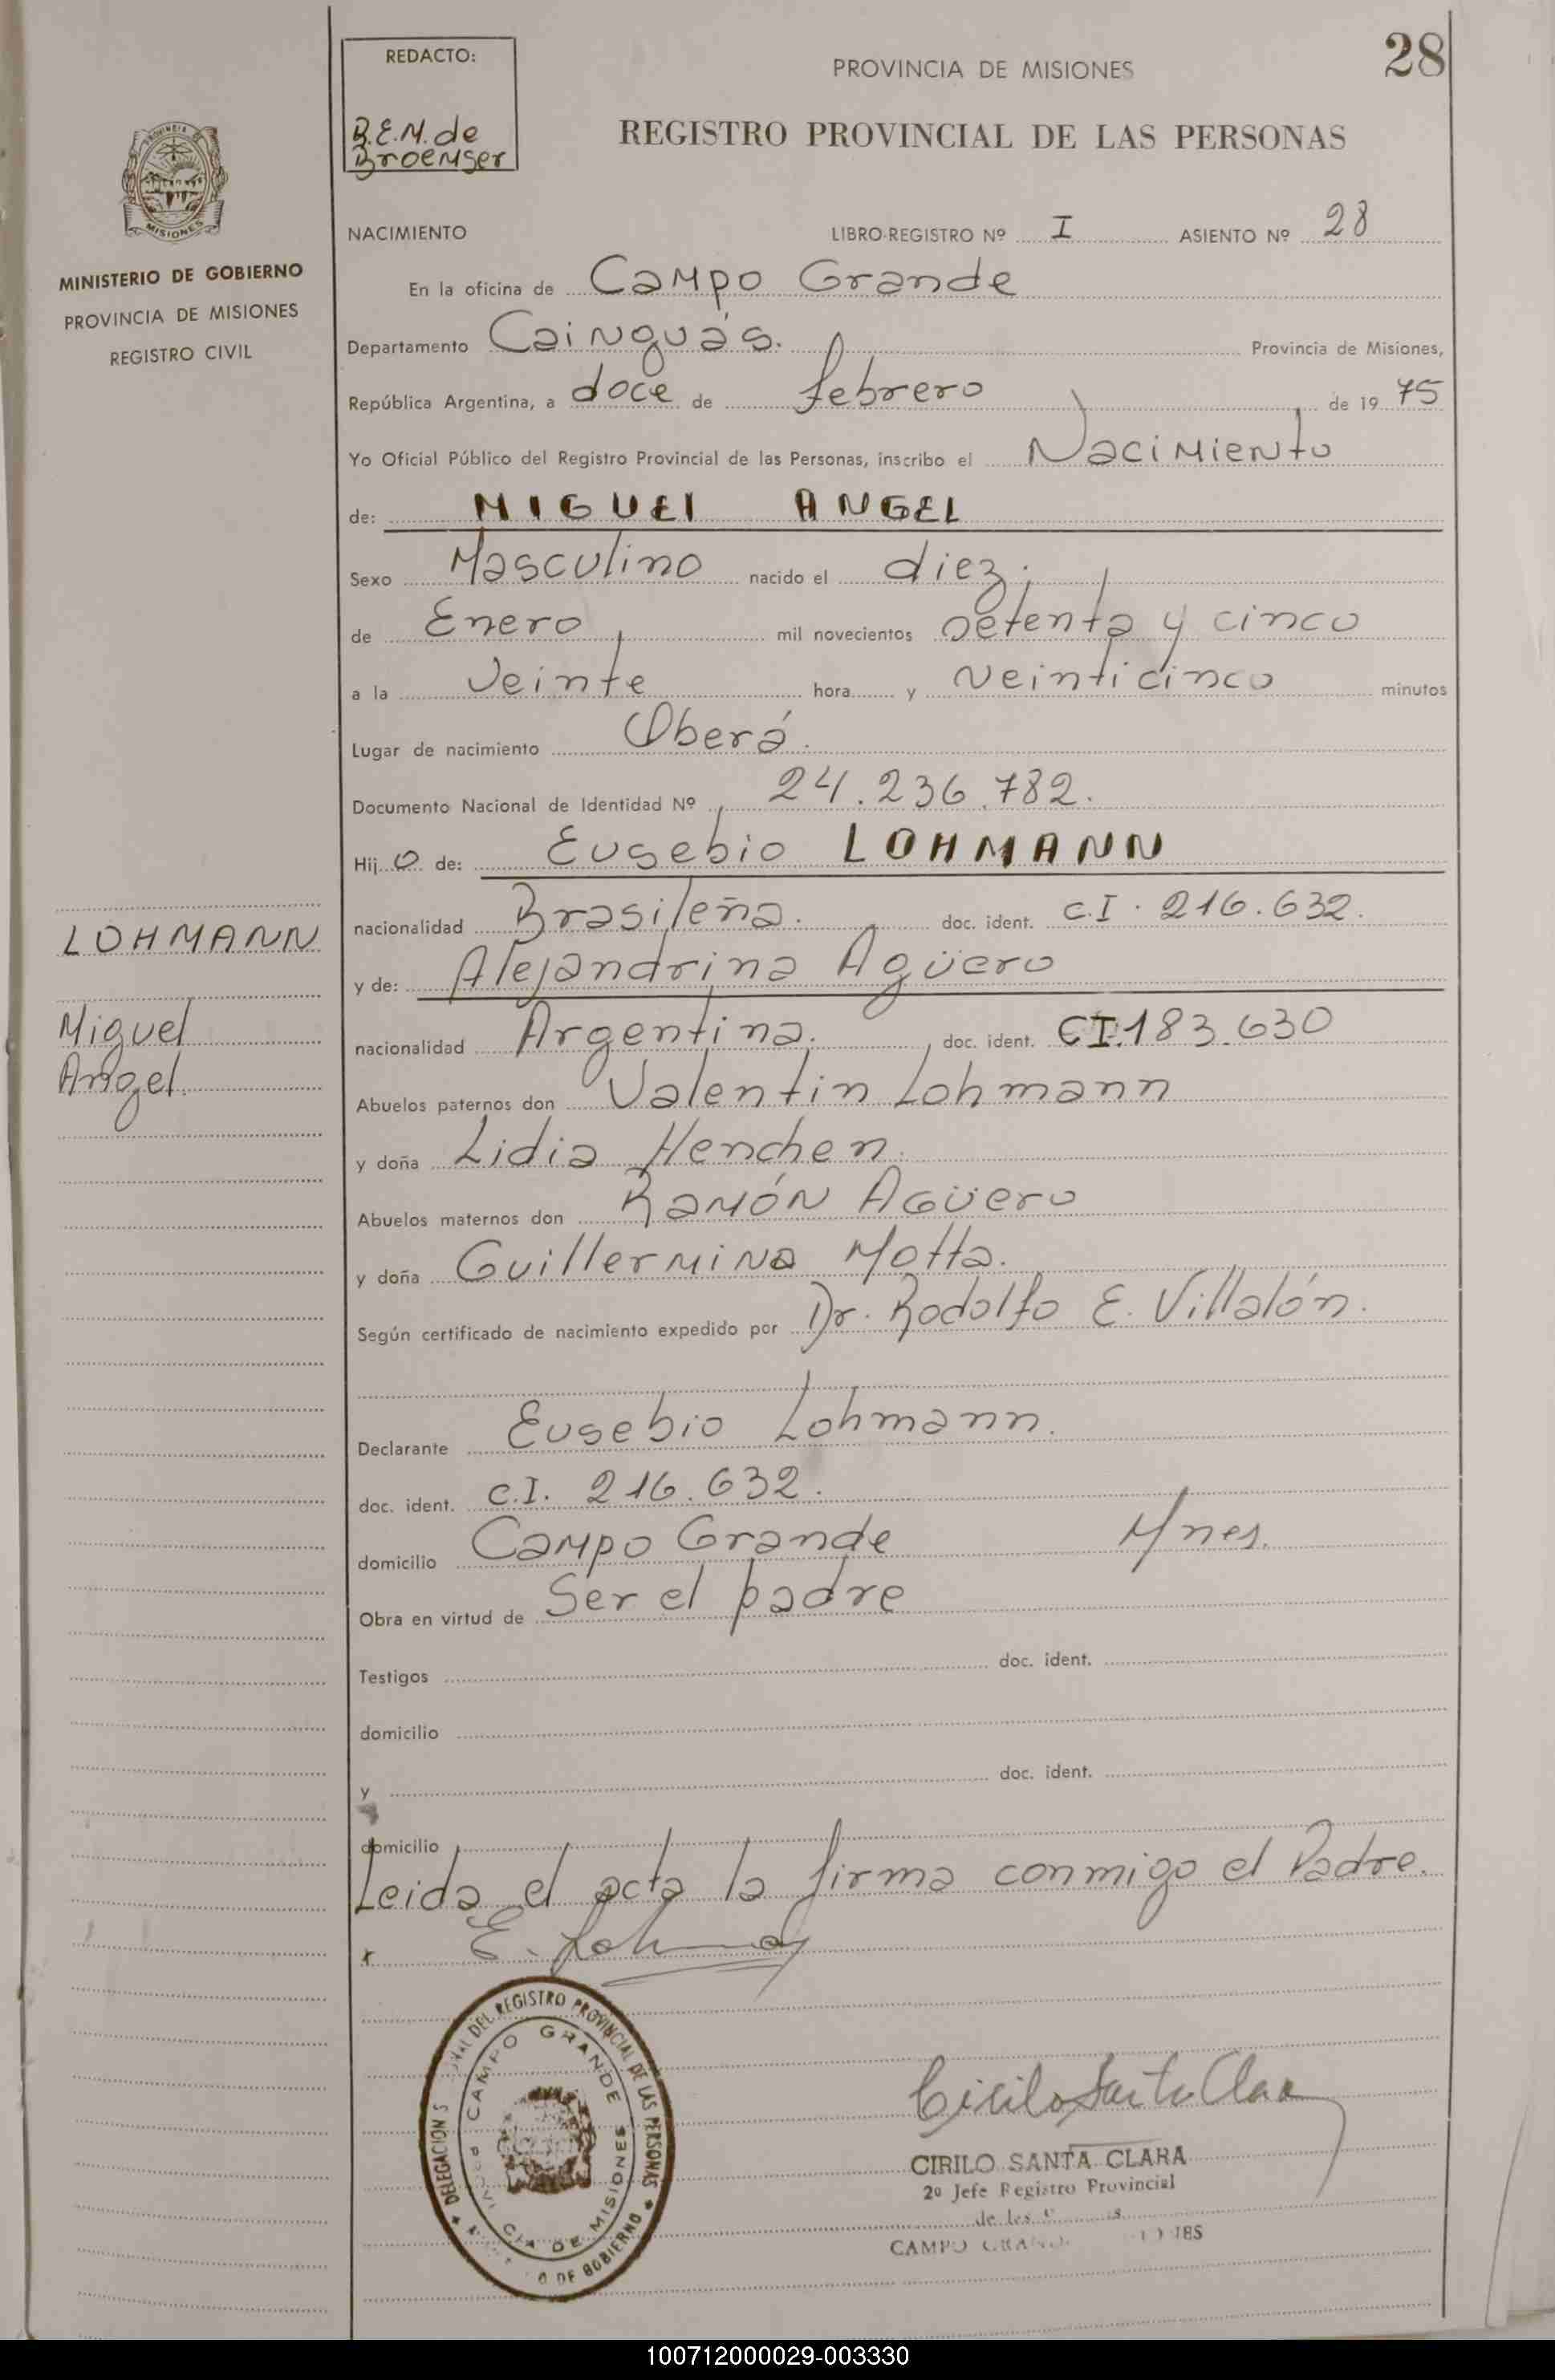 REDACTO:
B.E.M. de
Broemser
PROVINCIA DE MISIONES
28
REGISTRO PROVINCIAL DE LAS PERSONAS
MISIONES
MINISTERIO DE GOBIERNO
PROVINCIA DE MISIONES
REGISTRO CIVIL
NACIMIENTO LIBRO-REGISTRO Nº I ASIENTO Nº 28
En la oficina de Campo Grande
Departamento Cainguás. Provincia de Misiones,
República Argentina, a doce de febrero de 19 75
Yo Oficial Público del Registro Provincial de las Personas, inscribo el Nacimiento
de: MIGUEL ANGEL
Sexo Masculino nacido el diez
de Enero mil novecientos Setenta y cinco
a la Veinte hora y veinticinco minutos
Lugar de nacimiento Oberá.
Documento Nacional de Identidad Nº 24.236.782.
Hij o de: Eusebio LOHMANN
nacionalidad Brasileña. doc. ident. C.I. 216.632.
y de: Alejandrina Agüero
nacionalidad Argentina. doc. ident. CI.183.630
Abuelos paternos don Valentin Lohmann
y doña Lidia Henchen.
Abuelos maternos don Ramón Agüero
y doña Guillermina Motta.
Según certificado de nacimiento expedido por Dr. Rodolfo E. Villalón.
Declarante Eusebio Lohmann.
doc. ident. C.I. 216.632.
domicilio Campo Grande Mnes.
Obra en virtud de Ser el padre
Testigos doc. ident.
domicilio
y doc. ident.
domicilio
Leida el acta la firma conmigo el Padre.
LOHMANN
Miguel
Angel.
E. Lohmann
DELEGACION DEL REGISTRO PROVINCIAL DE LAS PERSONAS
CAMPO GRANDE
DE MISIONES
DE GOBIERNO
Cirilo Santa Clara
CIRILO SANTA CLARA
2º Jefe Registro Provincial
de las
CAMPO GRANDE
100712000029-003330